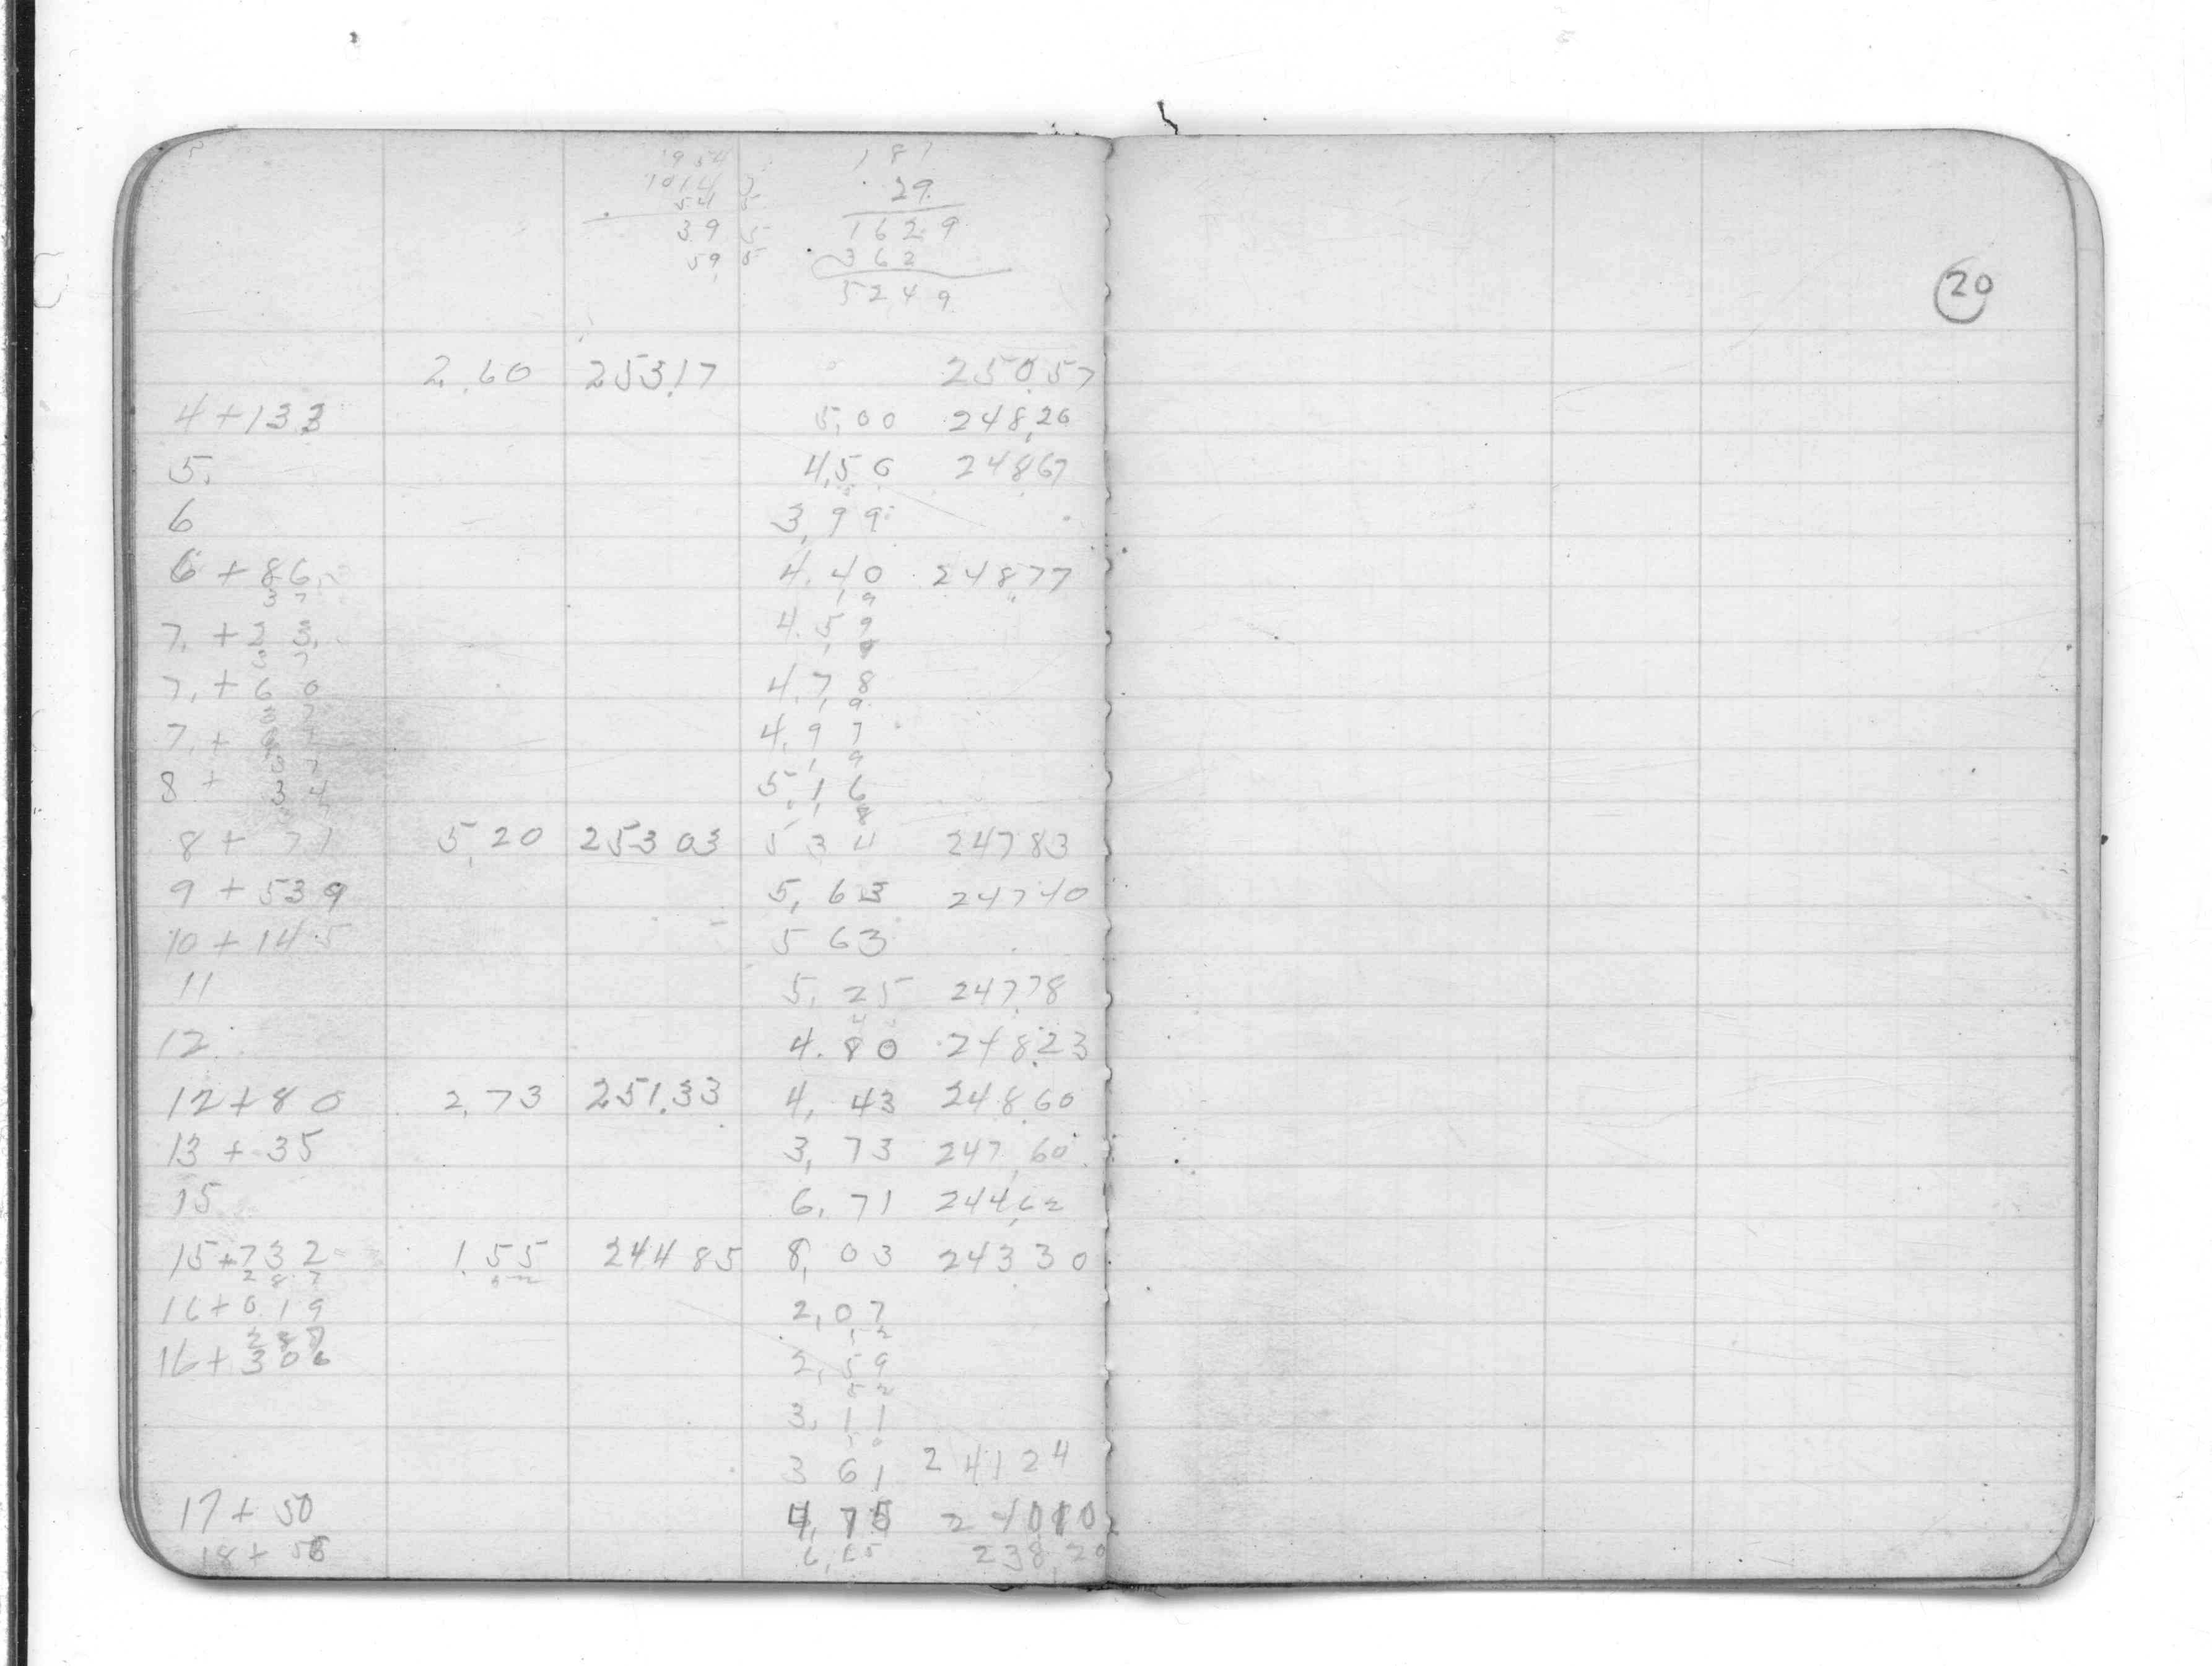 187
29
39 5 1629
59 5 362
5249
20
2,60 253,17 250,57
4+133 5,00 248,20
5. 4,50 248,67
6 3,99
6+86 4.40 248,77
3 7 19
7.+ 4.59
7.+60 4.78
19
7.+ 4.97
19
8+ 34 5.16
8+71 5,20 253 03 5 34 247 83
9+539 5,63 247 40
10+145 5 63
11 5,25 247,78
12 4.80 248,23
12+80 2,73 251,33 4,43 248,60
13+35 3,73 247,60
15 6,71 244,62
15+732 1.55 244 85 8,03 243 30
287 52
16+019 2,07
287 52
16+306 2,59
52
3,11
50
3 61 241 24
17+50 4,75 240 10
18+50 238,20